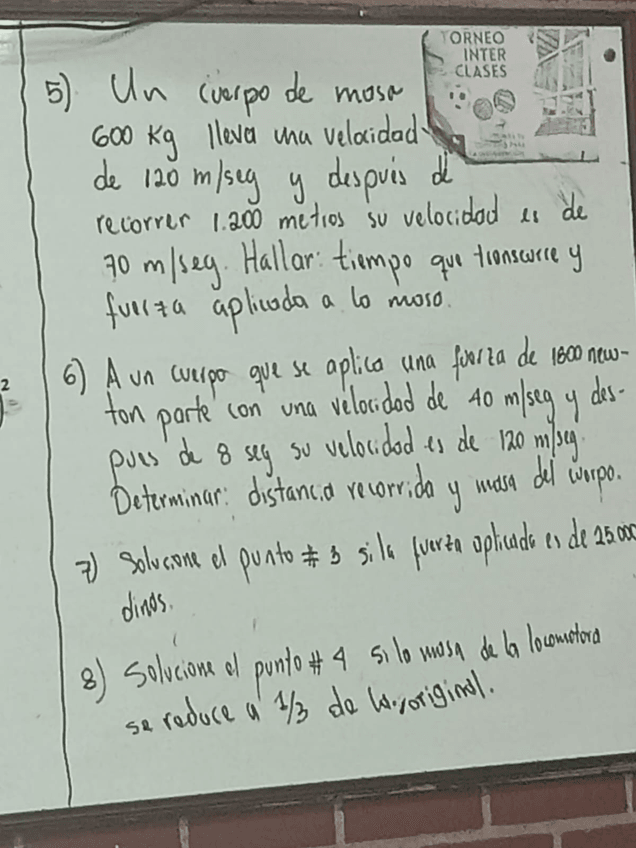 TORNEO
INTER
CLASES
5) Un cuerpo de masa
600 Kg lleva una velocidad
de 120 m/seg y después de
recorrer 1.200 metros su velocidad es de
70 m/seg. Hallar: tiempo que transcurre y
fuerza aplicada a la masa.
6) A un cuerpo que se aplica una fuerza de 1800 new-
ton parte con una velocidad de 40 m/seg y des-
pues de 8 seg su velocidad es de 120 m/seg.
Determinar: distancia recorrida y masa del cuerpo.
7) Solucione el punto # 3 si la fuerza aplicada es de 25.000
dinas.
8) Solucione el punto # 4 si la masa de la locomotora
se reduce a 1/3 de la original.
2